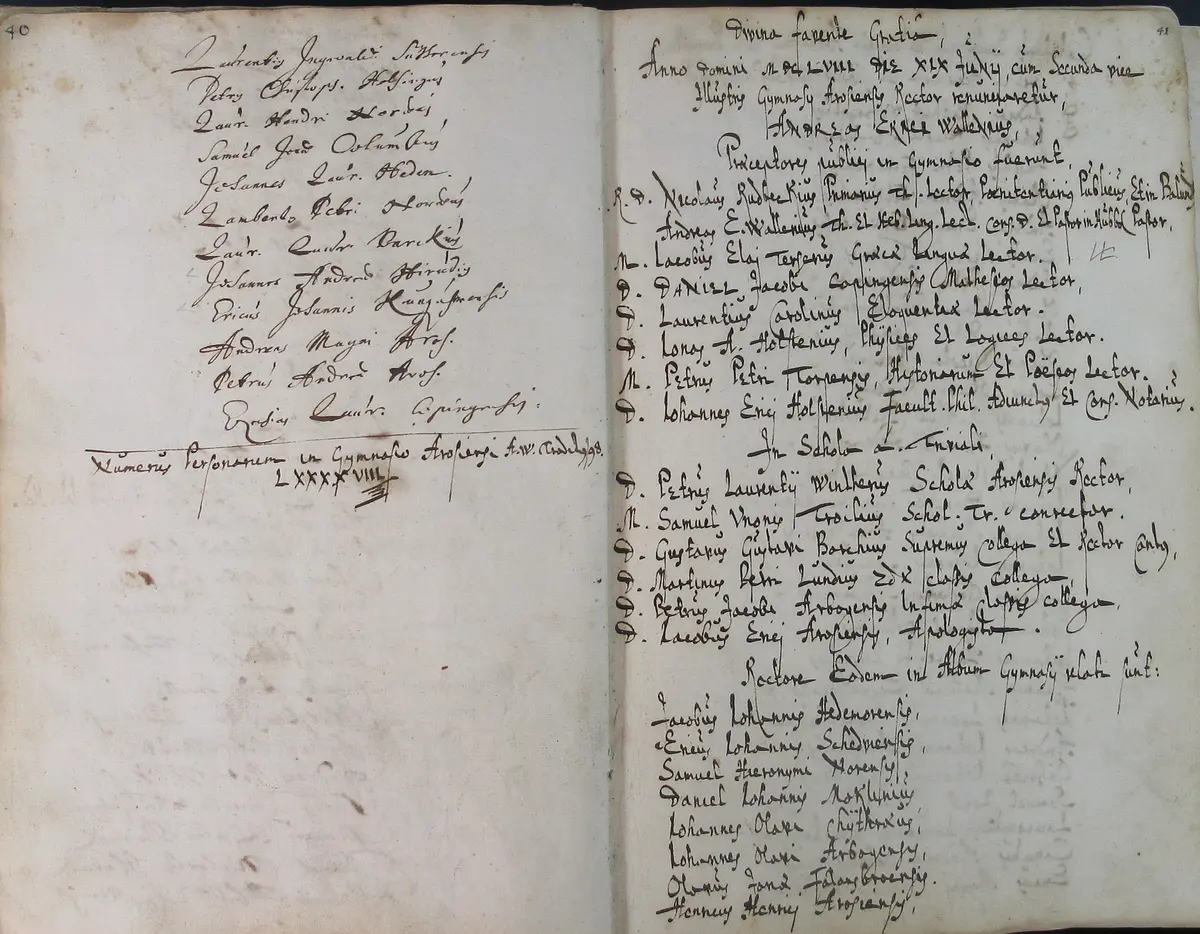 40
Laurentius Ingevaldi
Petrg Christop. Helsingg
Laur. Henrici Norbej
Samuel Jonæ Columbus
Johannes Laur. Hedem.
Lamberto Petri Nordius
Laur. Laur. Barckius
Johannes Andreæ Hirudis
Ericus Johannis
Andreas Magni Aros.
Petrus Andreæ Aros.
Laur. Cöpingensis.
Numerus Personarum in Gymnasio Arosiensi A.W.
LXXXXVIII
41
Divina favente Gratia,
Anno Domini MDCLVIII DIE XIX Junij cum Secunda vice
Illustris Gymnasij Arosiensis Rector renunciaretur,
ANDREAS ERICI Wallenius,
Præceptores publici in Gymnasio fuerunt,
R. D. Nicolaus Rudbeckius Primarius Th. Lector, Pœnitentiarius Publicus, Et in
Andreas E. Wallenius, Th. Et Heb. Ling. Lect. Cons. D. Et Pastor in Hubbo Pastor,
M. Iacobus Elaj Terserus Græcæ Linguæ Lector.
D. DANIEL Jacobi Copingensis Matheseos Lector,
D. Laurentius Carolinus Eloquentiæ Lector.
D. Ionas A. Holstenius, Physices Et Logices Lector.
M. Petrus Petri Torpensis, Historiarum Et Poëseos Lector.
D. Iohannes Erici Holstenius Facult. Phil. Adiunctg Et Cons. Notarius.
In Schola Triviali,
D. Petrus Laurentij Wintherus Scholæ Arosiensis Rector,
M. Samuel Unonis Troilius Schol. Tr. Conrector.
D. Gustavus Gustavi Barchius Supremus Collega Et Rector Cantg,
D. Martinus Petri Lundius 2dæ classis Collega,
D. Petrus Jacobi Arbogensis Infimæ Classis Collega,
D. Iacobus Erici Arosiensis, Apologista.
Rectore Eodem in Album Gymnasij relati sunt:
Jacobus Iohannis Hedemorensis,
Ericus Iohannis Schedviensis,
Samuel Hieronymi Norensis
Daniel Iohannis Moklinius
Iohannes Olavi Chythræus,
Iohannes Olavi Arbogensis,
Olavus Jonæ
Henricus Henrici Arosiensis,